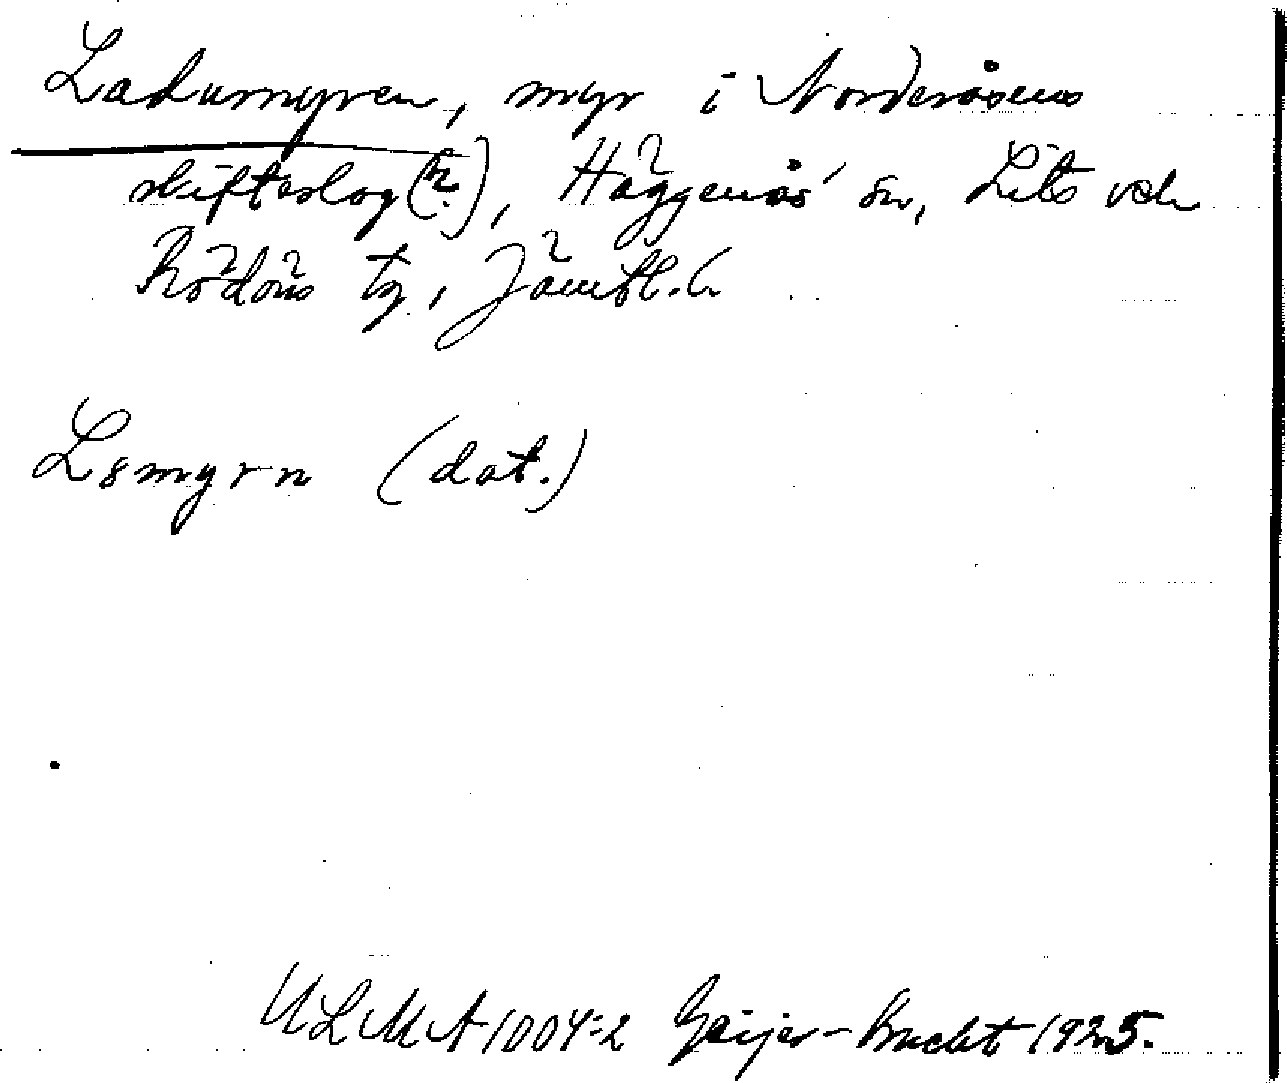 Ladumyren, myr i Norderåsens
skifteslag(?), Häggenås sn, Lits och
Rödöns tg, Jämtl. l.
L8myrn (dat.)
ULMA 1004:2 Geijer-Bucht 1925.